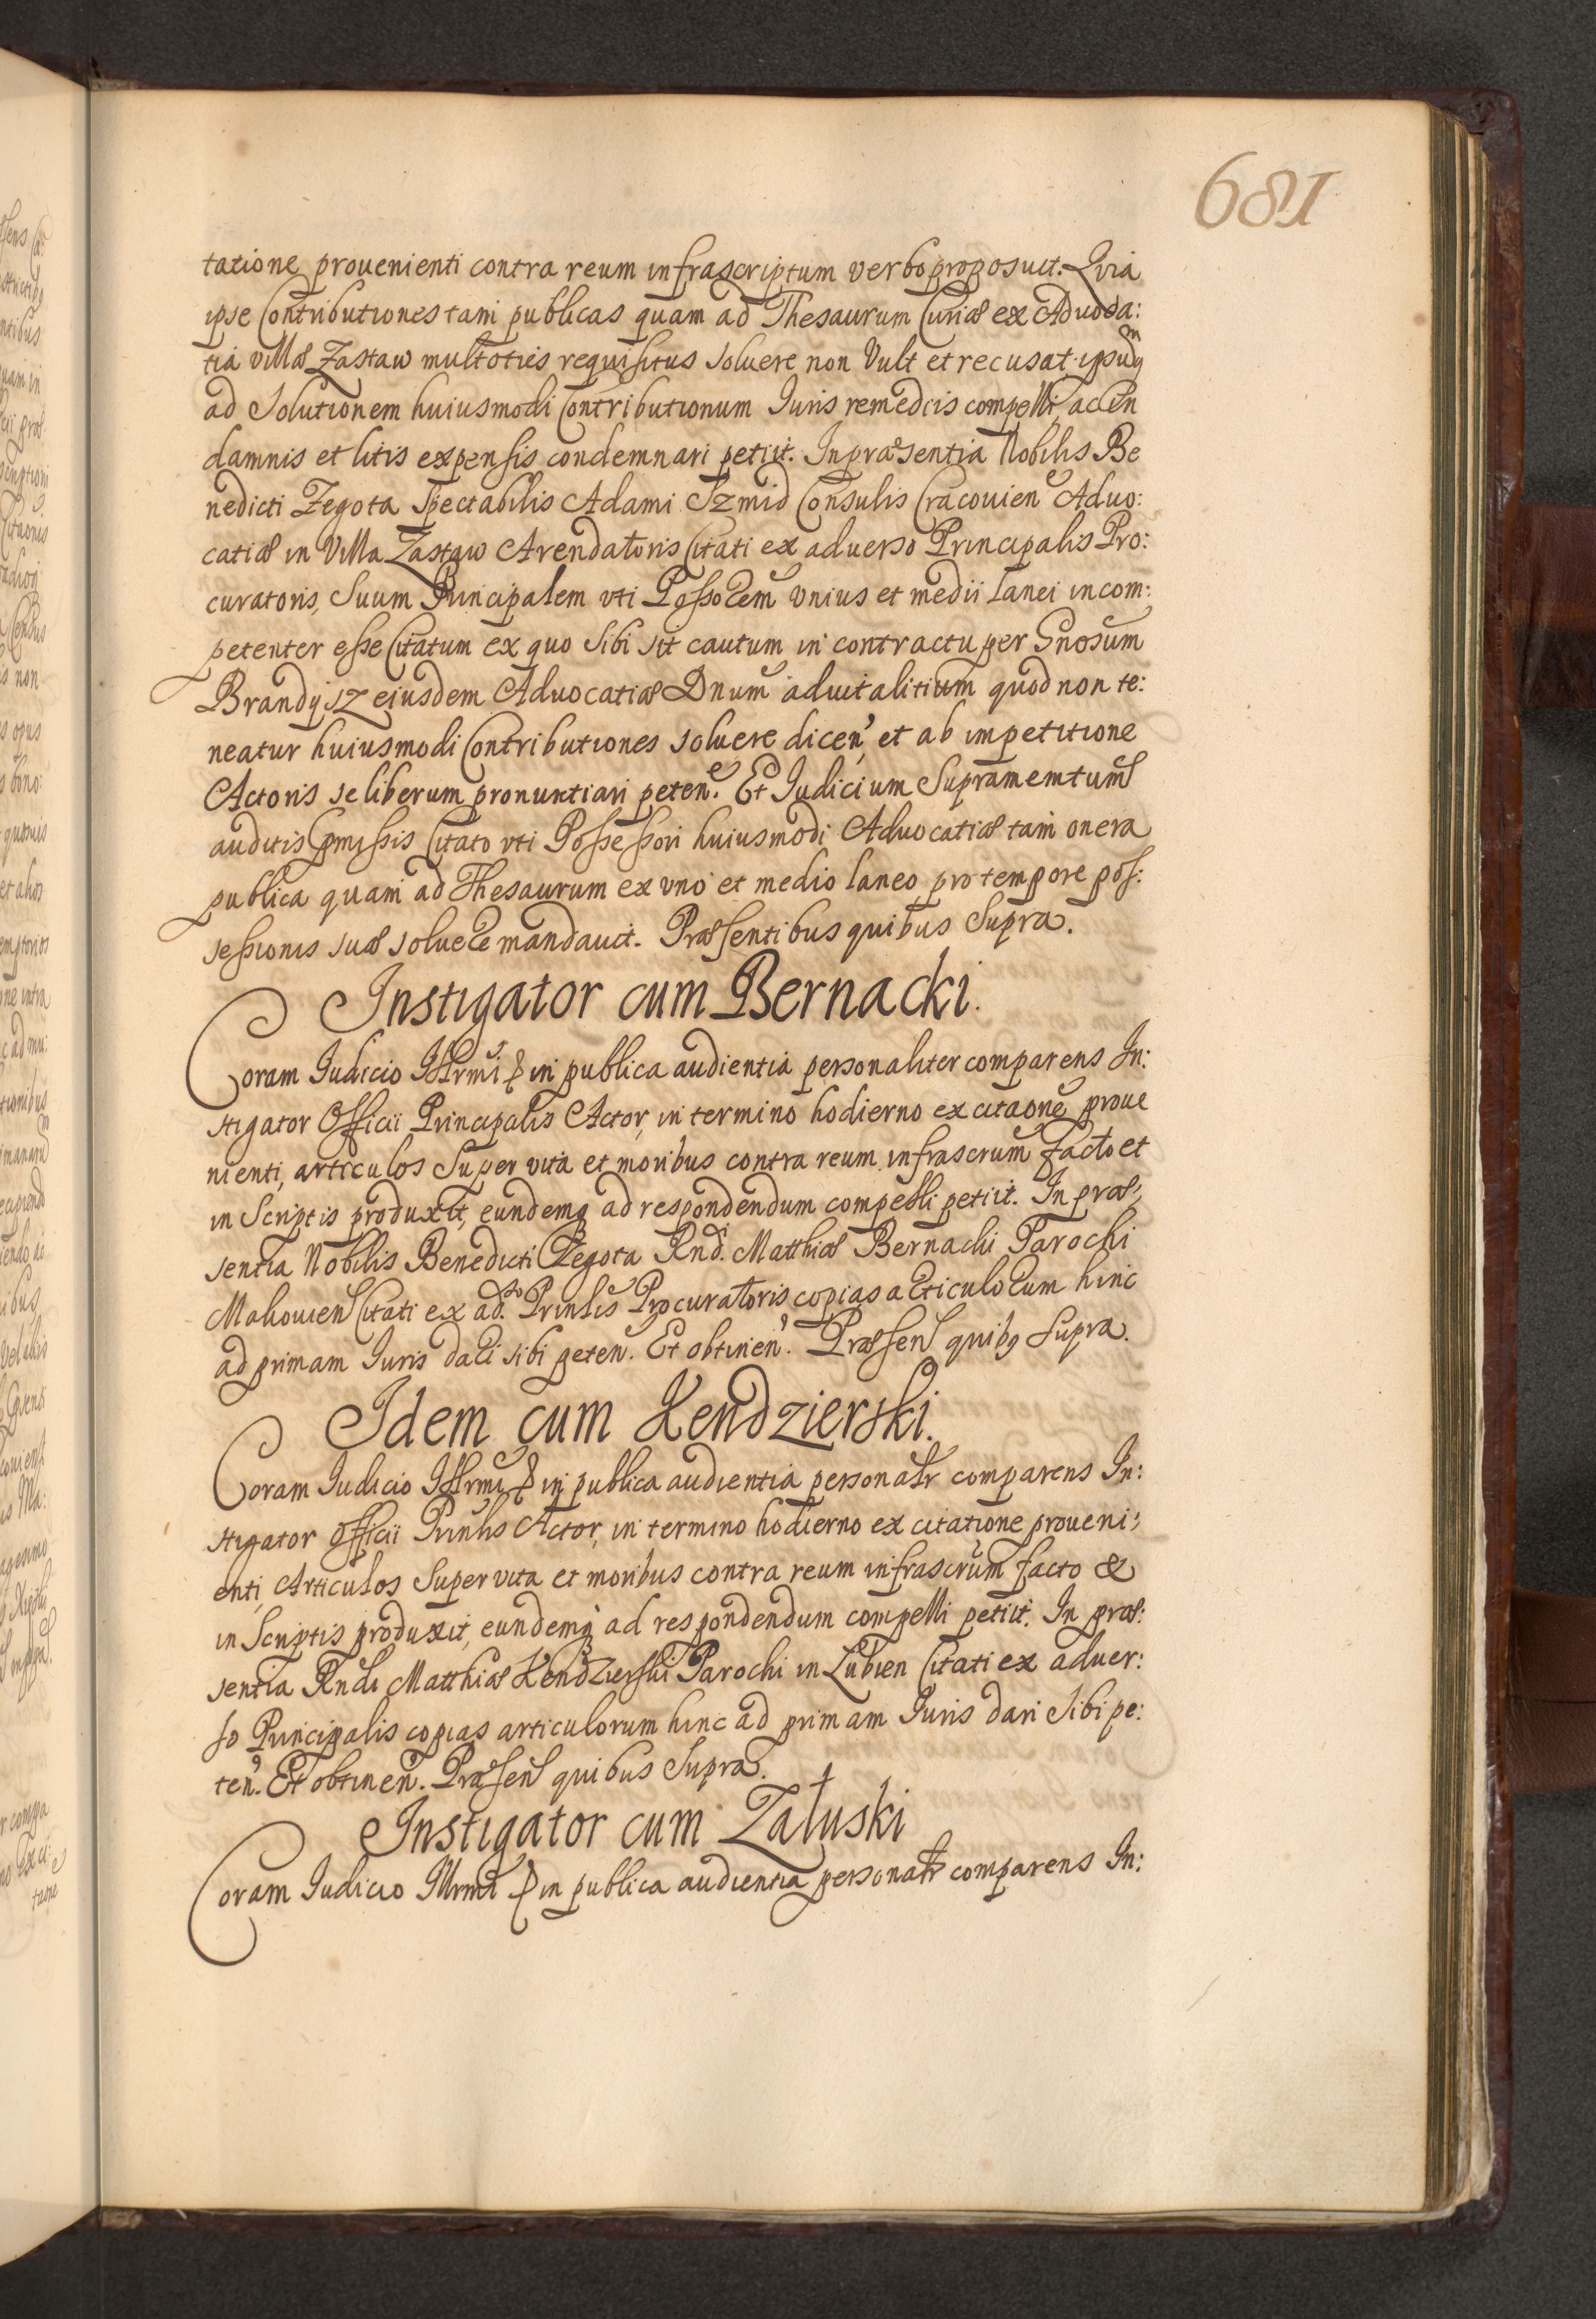 681
tatione prouenienti contra reum infrascriptum verbo proposuit. Quia
ipse Contributiones tam publicas quam ad Thesaurum Curiæ ex Aduoca:
tia villæ Zastaw multoties requisitus soluere non vult et recusat ipsumq
ad Solutionem huiusmodi Contributionum Iuris remediis compelli, ac in
damnis et litis expensis condemnari petiit. In præsentia Nobilis Be
nedicti Zegota Spectabilis Adami Szmid Consulis Cracouien Aduo:
catiæ in Villa Zastaw Arendatoris Citati ex aduerso Principalis Pro:
curatoris, Suum Principalem vti Possorem vnius et medii lanei incom:
petenter esse Citatum ex quo sibi sit cautum in contractu per Gnosum
Brandysz eiusdem Aduocatiæ Dnum aduitalitium quod non te:
neatur huiusmodi Contributiones soluere dicen, et ab impetitione
Actoris se liberum pronuntiari peten. Et Iudicium Supramemtum
auditis pmissis Citato vti Possessori huiusmodi Aduocatiæ tam onera
publica quam ad Thesaurum ex vno et medio laneo pro tempore pos:
sessionis suæ soluere mandauit. Præsentibus quibus Supra.
Instigator cum Bernacki.
Coram Iudicio Illrmi & in publica audientia personaliter comparens In:
stigator Officii Principalis Actor, in termino hodierno ex citaone proue
nienti, articulos Super vita et moribus contra reum infrascrum facto et
in Scriptis produxit, eundemq ad respondendum compelli petiit. In præ:
sentia Nobilis Benedicti Zegota Rnd. Matthiæ Bernacki Parochi
Makouien Citati ex ad.so Prinlis Procuratoris copias articulorum hinc
ad primam Iuris dari sibi peten. Et obtinen. Præsen quibq Supra.
Idem cum Kendzierski.
Coram Iudicio Illrmi & in publica audientia personalr comparens In:
stigator Officii Prinlis Actor, in termino hodierno ex citatione proueni:
enti, Articulos Super vita et moribus contra reum infrascrum facto &
in Scriptis produxit, eundemq ad respondendum compelli petiit. In præ:
sentia Rndi Matthiæ Kendzierski Parochi in Lubien Citati ex aduer:
so Principalis copias articulorum hinc ad primam Iuris dari Sibi pe:
ten. Et obtinen. Præsen quibus Supra.
Instigator cum Załuski
Coram Iudicio Illrmi & in publica audientia personalr comparens In: